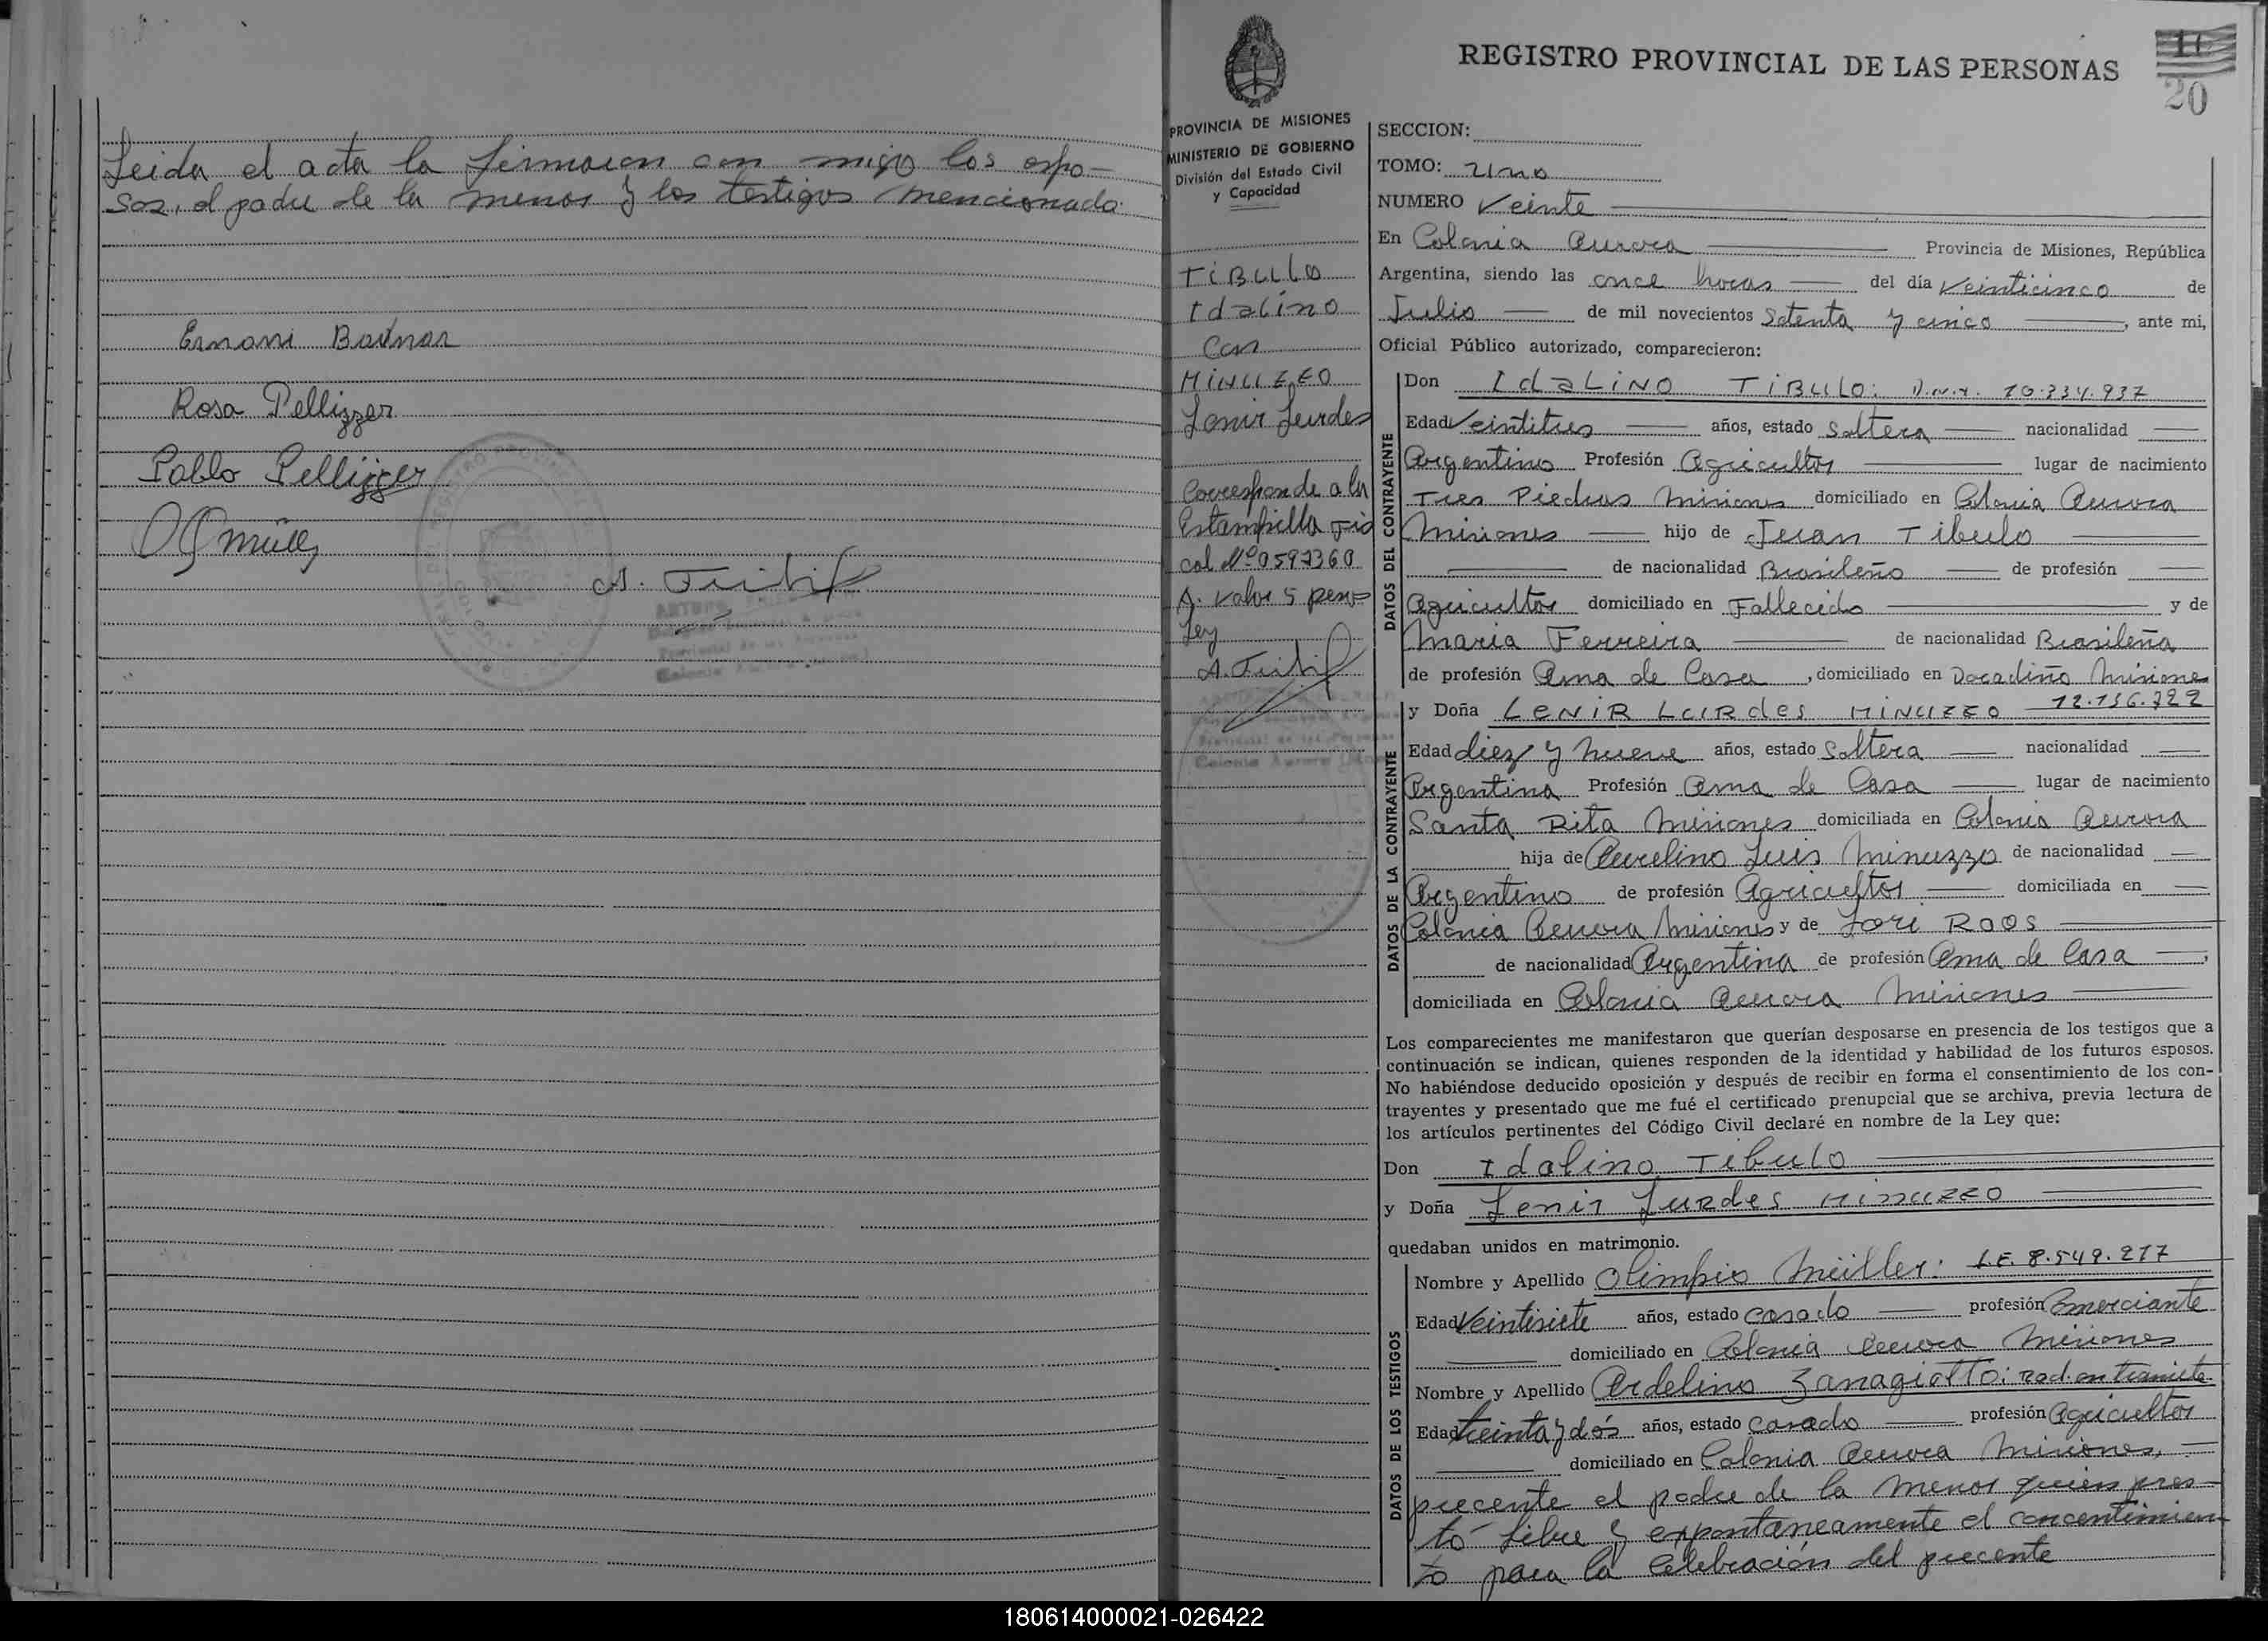 Leida el acta la firmaron con migo los espo-
sos, el padre de la menor y los testigos mencionado.
Ernani Bodnar
Rosa Pellizzer
Pablo Pellizzer
REGISTRO PROVINCIAL DE LAS PERSONAS
20
PROVINCIA DE MISIONES
MINISTERIO DE GOBIERNO
División del Estado Civil
y Capacidad
TIBULO
Idalino
Con
MINUZZO
Lenir Lurdes
Corresponde a la
Estampilla Fis
cal Nº 0597360
A. valor 5 pesos
Ley
SECCION:
TOMO: Uno
NUMERO Veinte
En Colonia Aurora Provincia de Misiones, República
Argentina, siendo las once horas del día veinticinco de
Julio de mil novecientos Setenta y cinco, ante mi,
Oficial Público autorizado, comparecieron:
DATOS DEL CONTRAYENTE
Don IdaLiNO TiBULO: D.N.I. 10.334.937
Edad Veintitres años, estado Soltero nacionalidad
Argentino Profesión Agricultor lugar de nacimiento
Tres Piedras Misiones domiciliado en Colonia Aurora
Misiones hijo de Juan Tibulo
de nacionalidad Brasileño de profesión
Agricultor domiciliado en Fallecido y de
Maria Ferreira de nacionalidad Brasileña
de profesión Ama de Casa, domiciliado en Docadiño Misiones
DATOS DE LA CONTRAYENTE
y Doña LENIR LURdes MINUZZO 12.156.722
Edad diez y nueve años, estado Soltera nacionalidad
Argentina Profesión Ama de Casa lugar de nacimiento
Santa Rita Misiones domiciliada en Colonia Aurora
hija de Aurelino Luis Minuzzo de nacionalidad
Argentino de profesión Agricultor domiciliada en
Colonia Aurora Misiones y de Lori Roos
de nacionalidad Argentina de profesión Ama de Casa,
domiciliada en Colonia Aurora Misiones
Los comparecientes me manifestaron que querían desposarse en presencia de los testigos que a
continuación se indican, quienes responden de la identidad y habilidad de los futuros esposos.
No habiéndose deducido oposición y después de recibir en forma el consentimiento de los con-
trayentes y presentado que me fué el certificado prenupcial que se archiva, previa lectura de
los artículos pertinentes del Código Civil declaré en nombre de la Ley que:
Don Idalino Tibulo
y Doña Lenir Lurdes MINUZZO
quedaban unidos en matrimonio.
DATOS DE LOS TESTIGOS
Nombre y Apellido Olimpio Müller: L.E. 8.549.277
Edad Veintisiete años, estado casado profesión Comerciante
domiciliado en Colonia Aurora Misiones
Nombre y Apellido Ardelino Zanagiotto: Rad. en tramite
Edad treinta y dós años, estado casado profesión Agricultor
domiciliado en Colonia Aurora Misiones,
precente el padre de la menor quien pres-
tó libre y expontaneamente el concentimien-
to para la celebración del precente
180614000021-026422